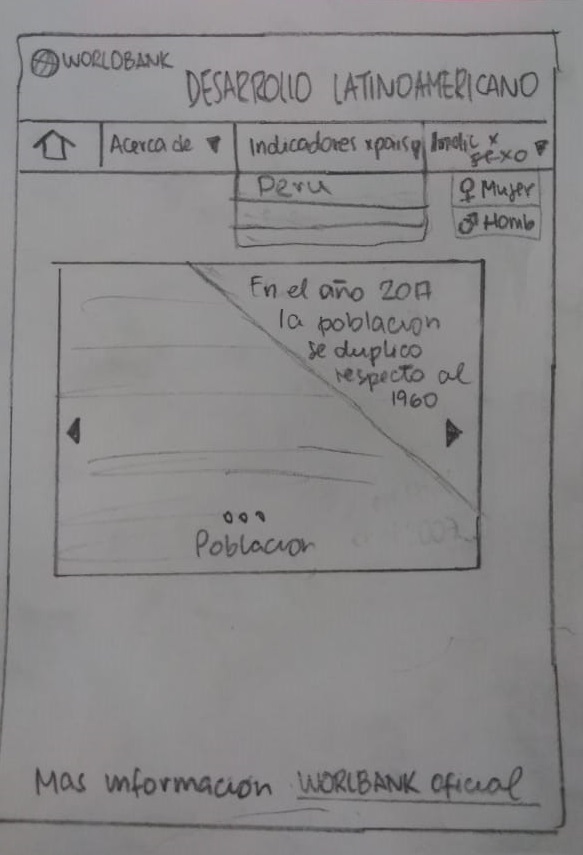 WORLDBANK
DESARROLLO LATINOAMERICANO
Acerca de ▼ Indicadores xpais▼ Indic x
sexo ▼
Peru
♀ Mujer
♂ Homb
En el año 2017
la poblacion
se duplico
respecto al
1960
Poblacion
Mas informacion WORLBANK oficial